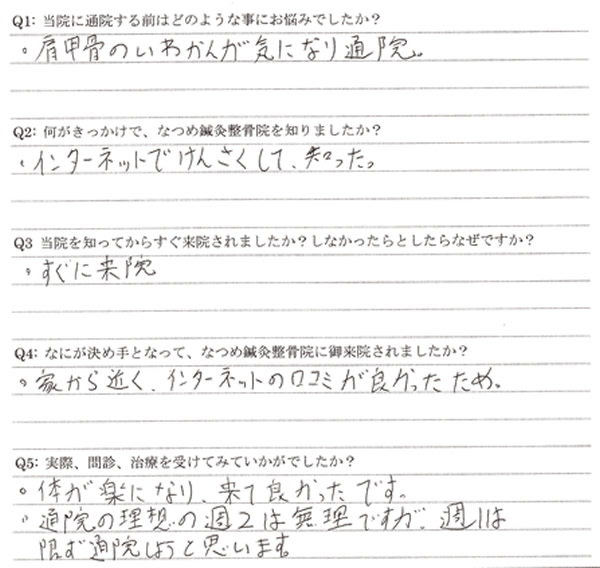 Q1: 当院に通院する前はどのような事にお悩みでしたか？
。肩甲骨のいわかんが気になり通院。
Q2: 何がきっかけで、なつめ鍼灸整骨院を知りましたか？
・インターネットでけんさくして、知った。
Q3 当院を知ってからすぐ来院されましたか？しなかったらとしたらなぜですか？
・すぐに来院
Q4: なにが決め手となって、なつめ鍼灸整骨院に御来院されましたか？
。家から近く、インターネットの口コミが良かったため。
Q5: 実際、問診、治療を受けてみていかがでしたか？
。体が楽になり、来て良かったです。
。通院の理想の週2は無理ですが、週1は
限ず通院しようと思います